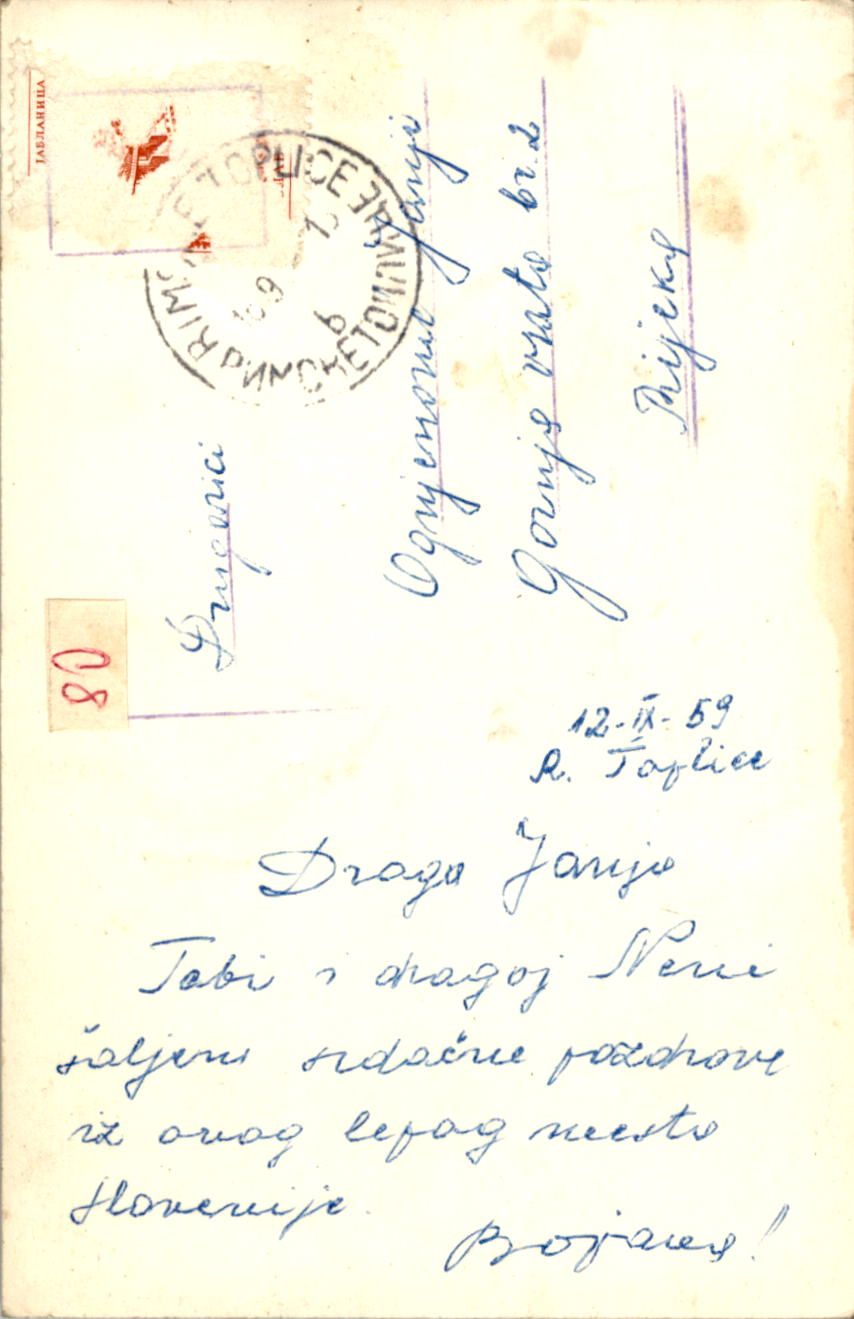 ЈАБЛАНИЦА
TOPLICE
80
Drugarici
Ognjenović Janji
Gornja vrata br. 2
Rijeka
12-IX-59
R. Toplice
Draga Janja
Tebi i dragoj Neni
šaljem srdačne pozdrave
iz ovog lepog mesta
Slovenije.
Bojana!